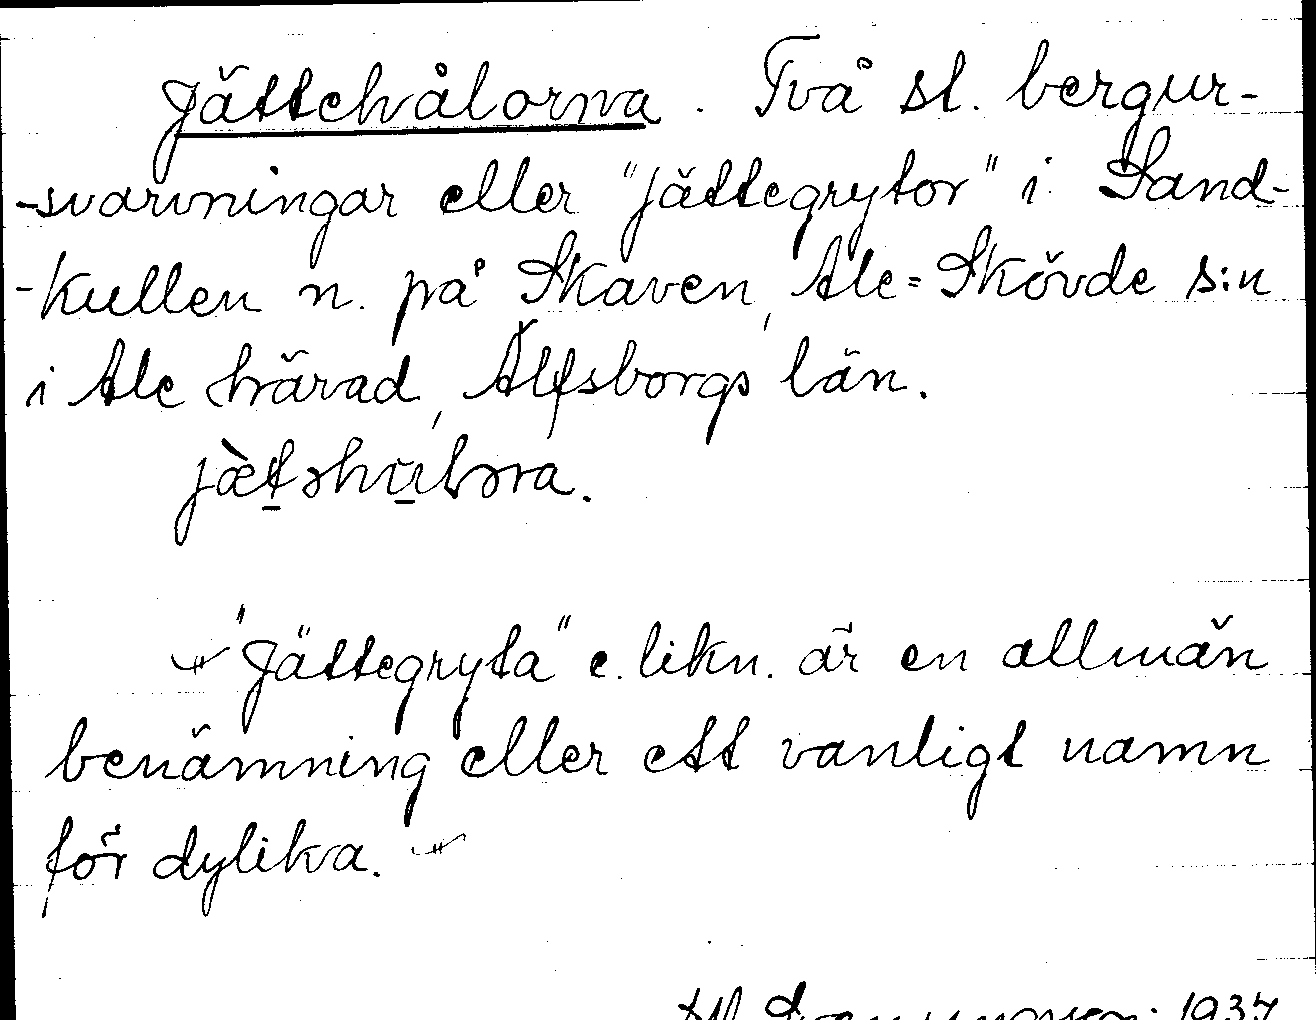 Jättehålorna. Två st. bergur-
-svarvningar eller "jättegrytor" i Sand-
-kullen n. på Skaven, Ale=Skövde s:n
i Ale härad, Älfsborgs län.
"Jättegryta" e. likn. är en allmän
benämning eller ett vanligt namn
för dylika.
1937